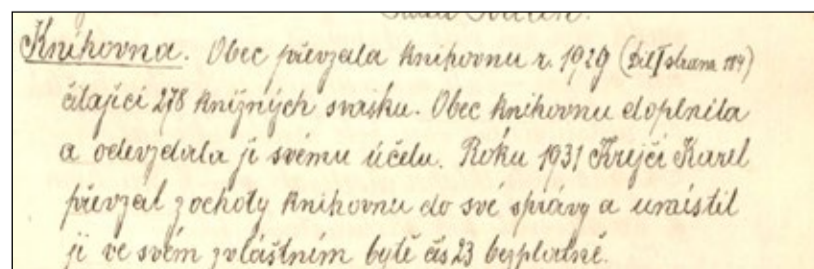 Knihovna. Obec převzala knihovnu r. 1929 (Díl I strana 184)
čítající 278 knižných svasku. Obec knihovnu doplnila
a odevzdala ji svému účelu. Roku 1931 Krejčí Karel
převzal z ochoty knihovnu do své správy a umístil
ji ve svém zvláštním bytě čís 23 bezplatně.